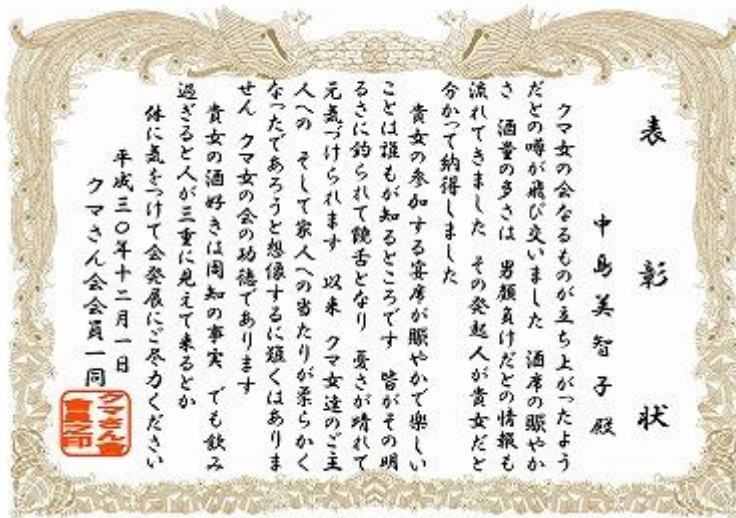 表彰状
中島美智子殿
クマ女の会なるものが立ち上がったよう
だとの噂が飛び交いました 酒席の賑やか
さ 酒量の多さは 男顔負けだとの情報も
流れてきました その発起人が貴女だと
分かって納得しました
貴女の参加する宴席が賑やかで楽しい
ことは誰もが知るところです 皆がその明
るさに釣られて饒舌となり 憂さが晴れて
元気づけられます 以来 クマ女達のご主
人への そして家人への当たりが柔らかく
なったであろうと想像するに難くはありま
せん クマ女の会の功徳であります
貴女の酒好きは周知の事実 でも飲み
過ぎると人が三重に見えて来るとか
体に気をつけて会発展にご尽力ください
平成三〇年十二月一日
クマさん会会員一同
クマさん會
會員之印